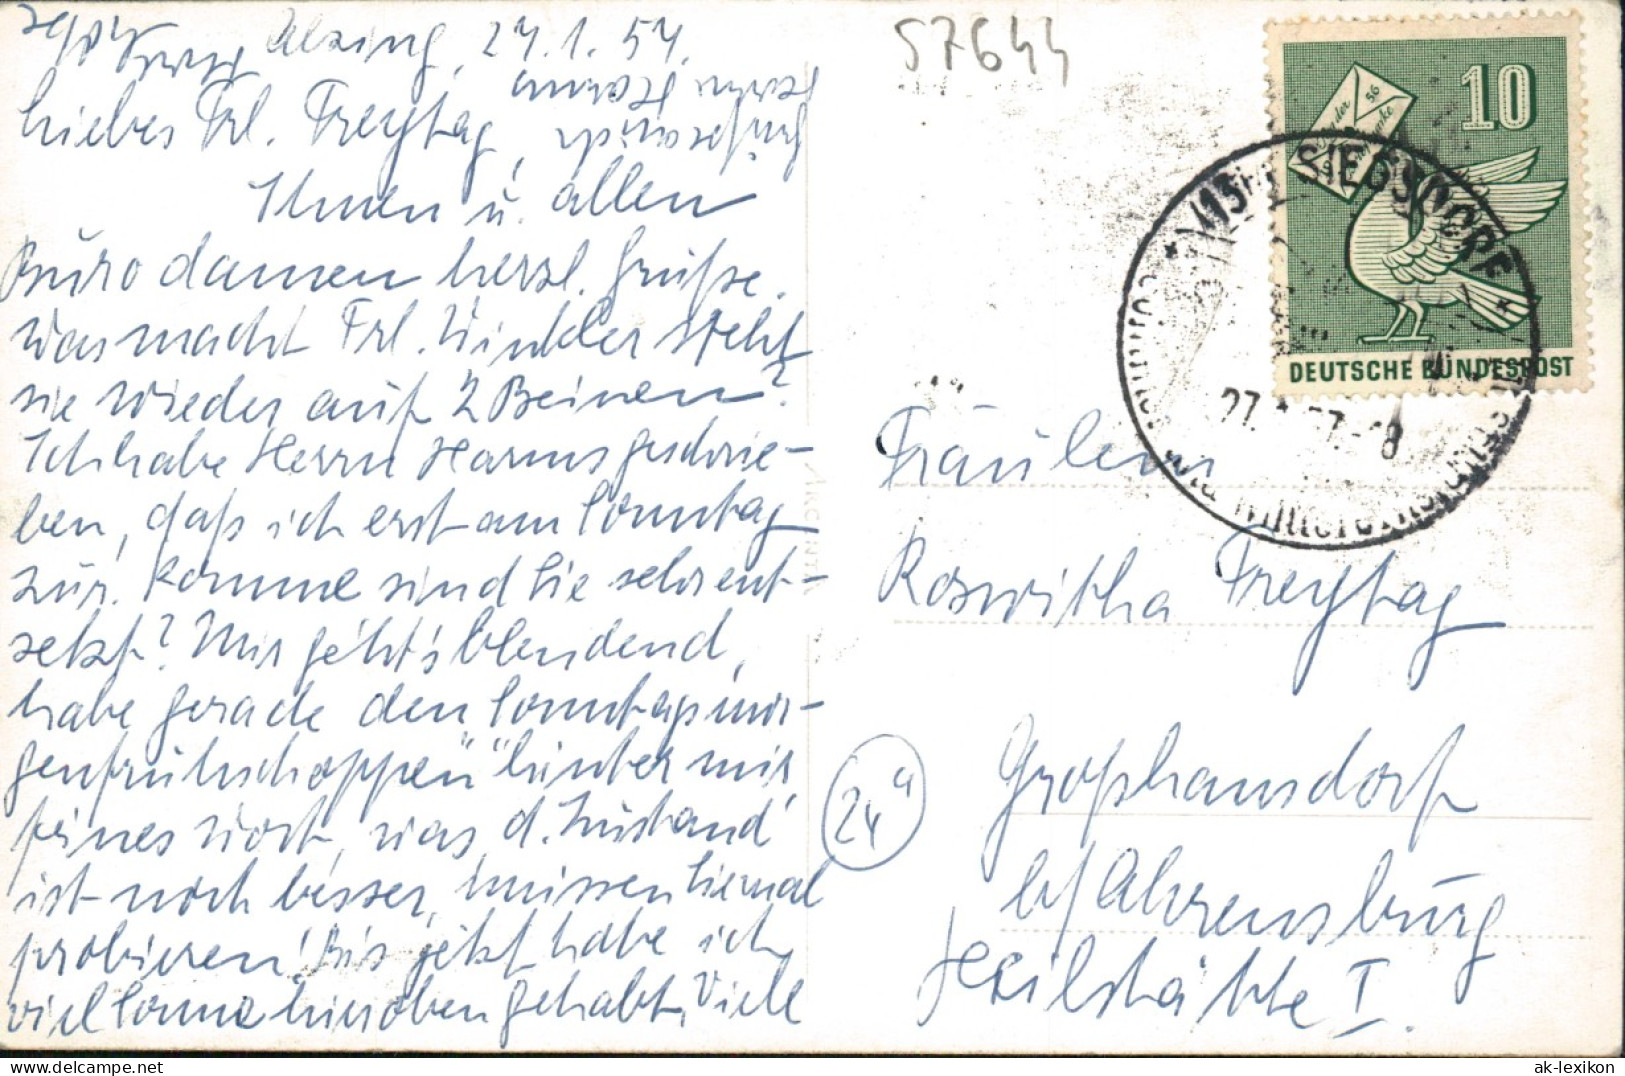 Alzing, 27.1.57.
57644
Liebes Frl. Freytag,
Ihnen u. allen
Bürodamen herzl. Grüße.
Was macht Frl. Winkler steht
sie wieder auf 2 Beinen?
Ich habe Herrn Harms geschrie-
ben, daß ich erst am Sonntag
zur. komme sind Sie sehr ent-
setzt? Mir geht's blendend,
habe gerade den Sonntagsmor-
genfrühschoppen" hinter mir,
feines Wort, was, d. Zustand
ist noch besser, müssen Sie mal
probieren! Bis jetzt habe ich
viel Sonne hier oben gehabt. Viele
Herrn Hamm
10
SIEGSDORF
DEUTSCHE BUNDESPOST
27. 57.-18
Fräulein
Roswitha Freytag
24a
Großhansdorf
b/Ahrensburg
Heilstätte I.
ak-lexikon